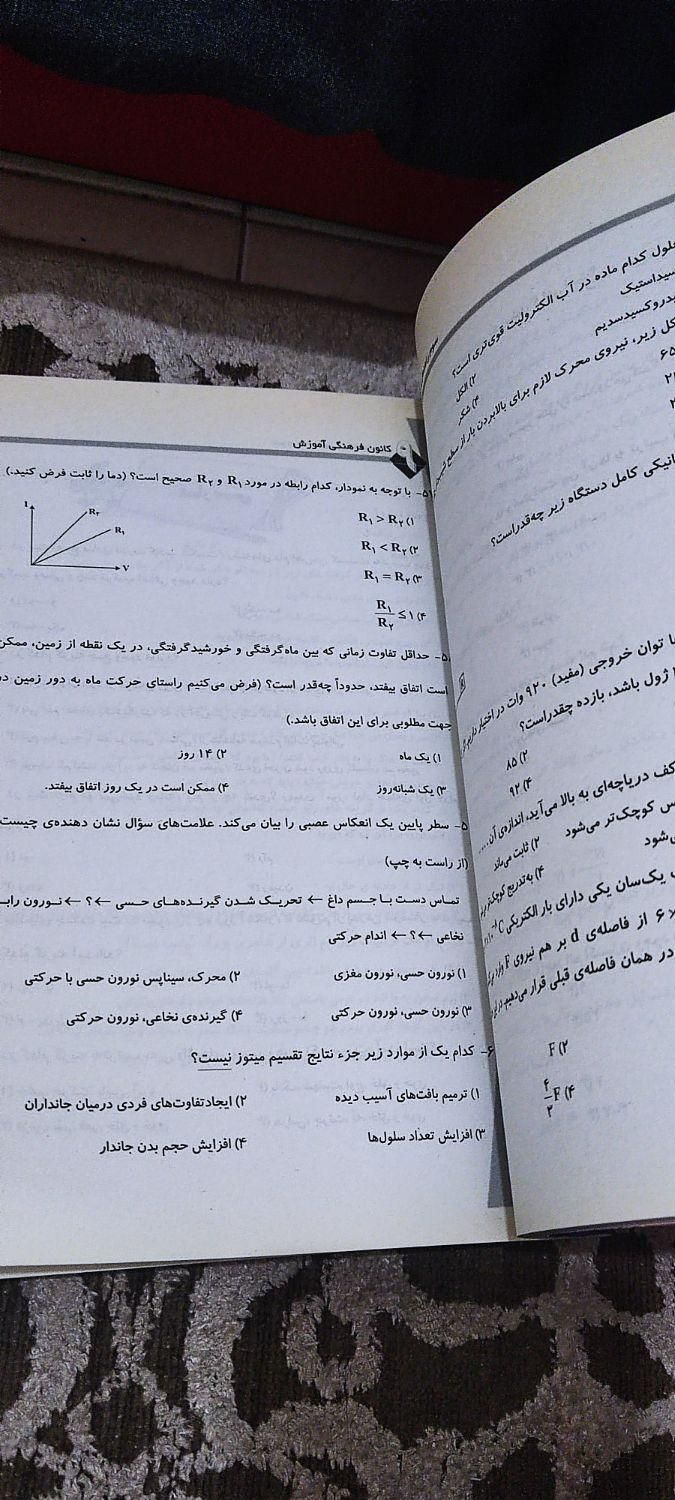 حلول کدام ماده در آب الکترولیت قوی‌تری است؟
سیداستیک
۲) الکل
یدروکسیدسدیم
۴) شکر
کل زیر، نیروی محرک لازم برای بالابردن بار از سطح
۶۵
انیکی کامل دستگاه زیر چه‌قدراست؟
ا توان خروجی (مفید) ۹۲۰ وات در اختیار داریم
ژول باشد، بازده چقدراست؟
۲) ۸۵
۴) ۹۲
کف دریاچه‌ای به بالا می‌آید، اندازه‌ی آن ....
س کوچک‌تر می‌شود
۲) ثابت می‌ماند
‌شود
۴) به‌تدریج کوچک‌تر
یک‌سان یکی دارای بار الکتریکی
۶ از فاصله‌ی d بر هم نیروی F
در همان فاصله‌ی قبلی قرار می‌دهیم
۲) F
۴) ۴/۲ F
کانون فرهنگی آموزش
۵- با توجه به نمودار، کدام رابطه در مورد R۱ و R۲ صحیح است؟ (دما را ثابت فرض کنید.)
I
R۲
R۱
V
۱) R۱ > R۲
۲) R۱ < R۲
۳) R۱ = R۲
۴) R۱/R۲ ≤ ۱
۵- حداقل تفاوت زمانی که بین ماه‌گرفتگی و خورشیدگرفتگی، در یک نقطه از زمین، ممکن
است اتفاق بیفتد، حدوداً چه‌قدر است؟ (فرض می‌کنیم راستای حرکت ماه به دور زمین در
جهت مطلوبی برای این اتفاق باشد.)
۱) یک ماه ۲) ۱۴ روز
۳) یک شبانه‌روز ۴) ممکن است در یک روز اتفاق بیفتد.
۵- سطر پایین یک انعکاس عصبی را بیان می‌کند. علامت‌های سؤال نشان دهنده‌ی چیست
(از راست به چپ)
تماس دست با جسم داغ ← تحریک شدن گیرنده‌های حسی ←؟ ← نورون راب
نخاعی ←؟ ← اندام حرکتی
۱) نورون حسی، نورون مغزی ۲) محرک، سیناپس نورون حسی با حرکتی
۳) نورون حسی، نورون حرکتی ۴) گیرنده‌ی نخاعی، نورون حرکتی
۶- کدام یک از موارد زیر جزء نتایج تقسیم میتوز نیست؟
۱) ترمیم بافت‌های آسیب دیده ۲) ایجادتفاوت‌های فردی درمیان جانداران
۳) افزایش تعداد سلول‌ها ۴) افزایش حجم بدن جاندار